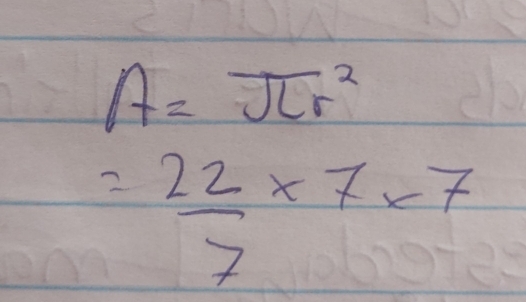 A = πr²
= 22/7 × 7 × 7